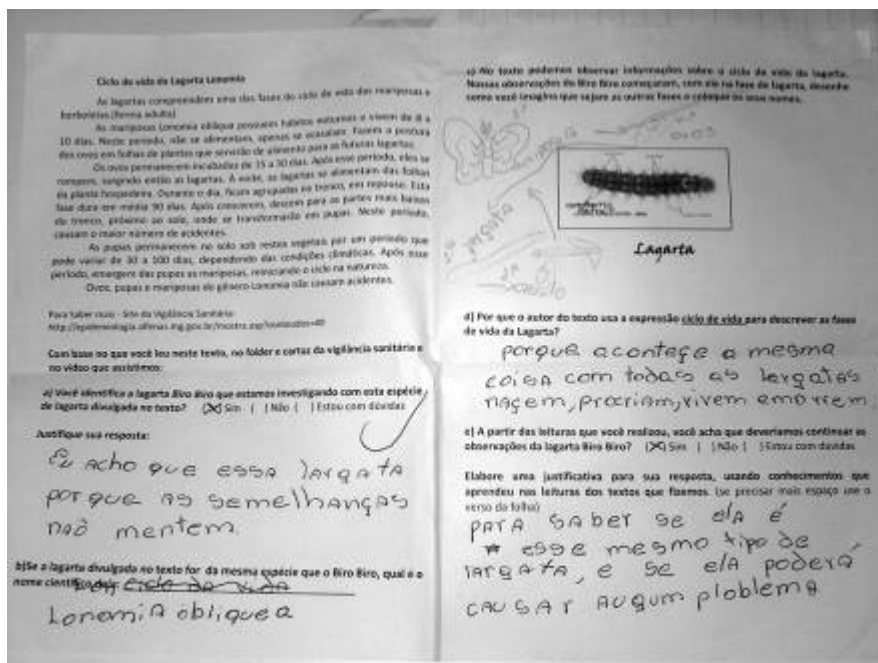 Ciclo de vida da Lagarta Lonomia
As lagartas compreendem uma das fases do ciclo de vida das mariposas e
borboletas (forma adulta)
As mariposas Lonomia obliqua possuem hábitos noturnos e vivem de 8 a
10 dias. Neste período, não se alimentam, apenas se acasalam. Fazem a postura
dos ovos em folhas de plantas que servirão de alimento para as futuras lagartas.
Os ovos permanecem incubados de 15 a 30 dias. Após esse período, eles se
rompem, surgindo então as lagartas. À noite, as lagartas se alimentam das folhas
da planta hospedeira. Durante o dia, ficam agrupadas no tronco, em repouso. Esta
fase dura em média 90 dias. Após crescerem, descem para as partes mais baixas
do tronco, próximo ao solo, onde se transformarão em pupas. Neste período,
causam o maior número de acidentes.
As pupas permanecem no solo sob restos vegetais por um período que
pode variar de 30 a 100 dias, dependendo das condições climáticas. Após esse
período, emergem das pupas as mariposas, reiniciando o ciclo na natureza.
Ovos, pupas e mariposas do gênero Lonomia não causam acidentes.
Para Saber mais - Site da Vigilância Sanitária:
Com base no que você leu neste texto, no folder e cartaz da vigilância sanitária e
no vídeo que assistimos:
a) Você identifica a lagarta Biro Biro que estamos investigando com esta espécie
de lagarta divulgada no texto? (X) Sim ( ) Não ( ) Estou com dúvidas
Justifique sua resposta:
Eu acho que essa largata
porque as semelhanças
não mentem.
b)Se a lagarta divulgada no texto for da mesma espécie que o Biro Biro, qual é o
nome científico
Lonomia obliquea
c) No texto podemos observar informações sobre o ciclo de vida da lagarta.
Nossas observações do Biro Biro começaram, com ele na fase de lagarta, desenhe
como você imagina que sejam as outras fases e coloque os seus nomes.
ovos
largata
Lagarta
d) Por que o autor do texto usa a expressão ciclo de vida para descrever as fases
de vida da Lagarta?
porque acontece a mesma
coisa com todas as largatas
naçem, procriam, vivem e morrem
e) A partir das leituras que você realizou, você acha que deveríamos continuar as
observações da lagarta Biro Biro? (X) Sim ( ) Não ( ) Estou com dúvidas
Elabore uma justificativa para sua resposta, usando conhecimentos que
aprendeu nas leituras dos textos que fizemos. (se precisar mais espaço use o
verso da folha)
para saber se ela é
esse mesmo tipo de
largata, e se ela poderá
causar augum ploblema